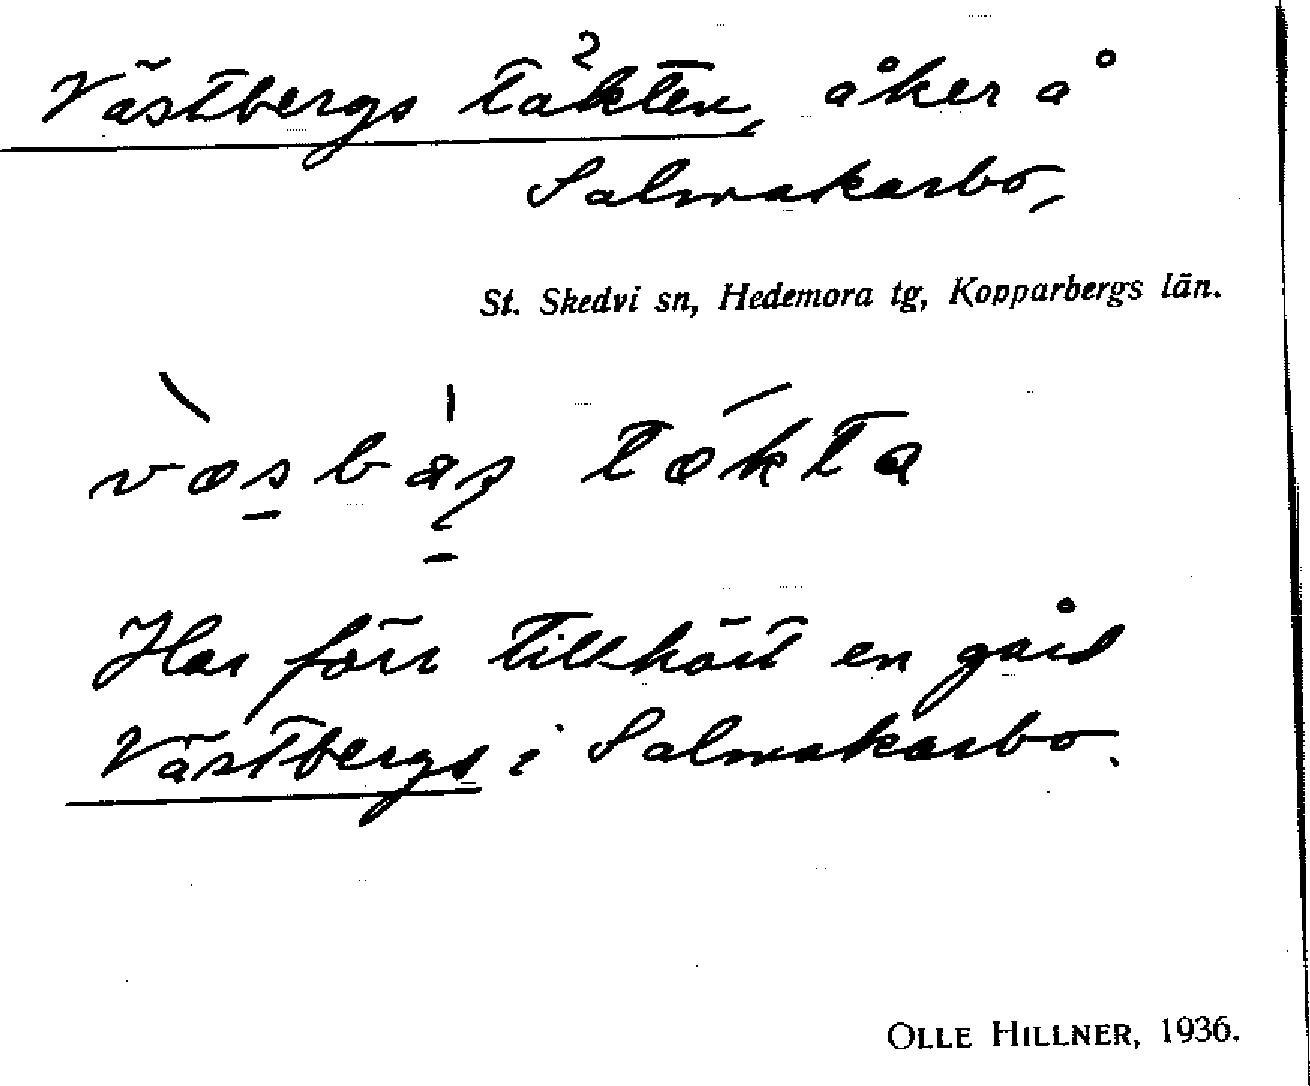 Västbergs täkten, åker å
Salmakarbo,
St. Skedvi sn, Hedemora tg, Kopparbergs län.
Har förr tillhört en gård
Västbergs i Salmakarbo.
OLLE HILLNER, 1936.